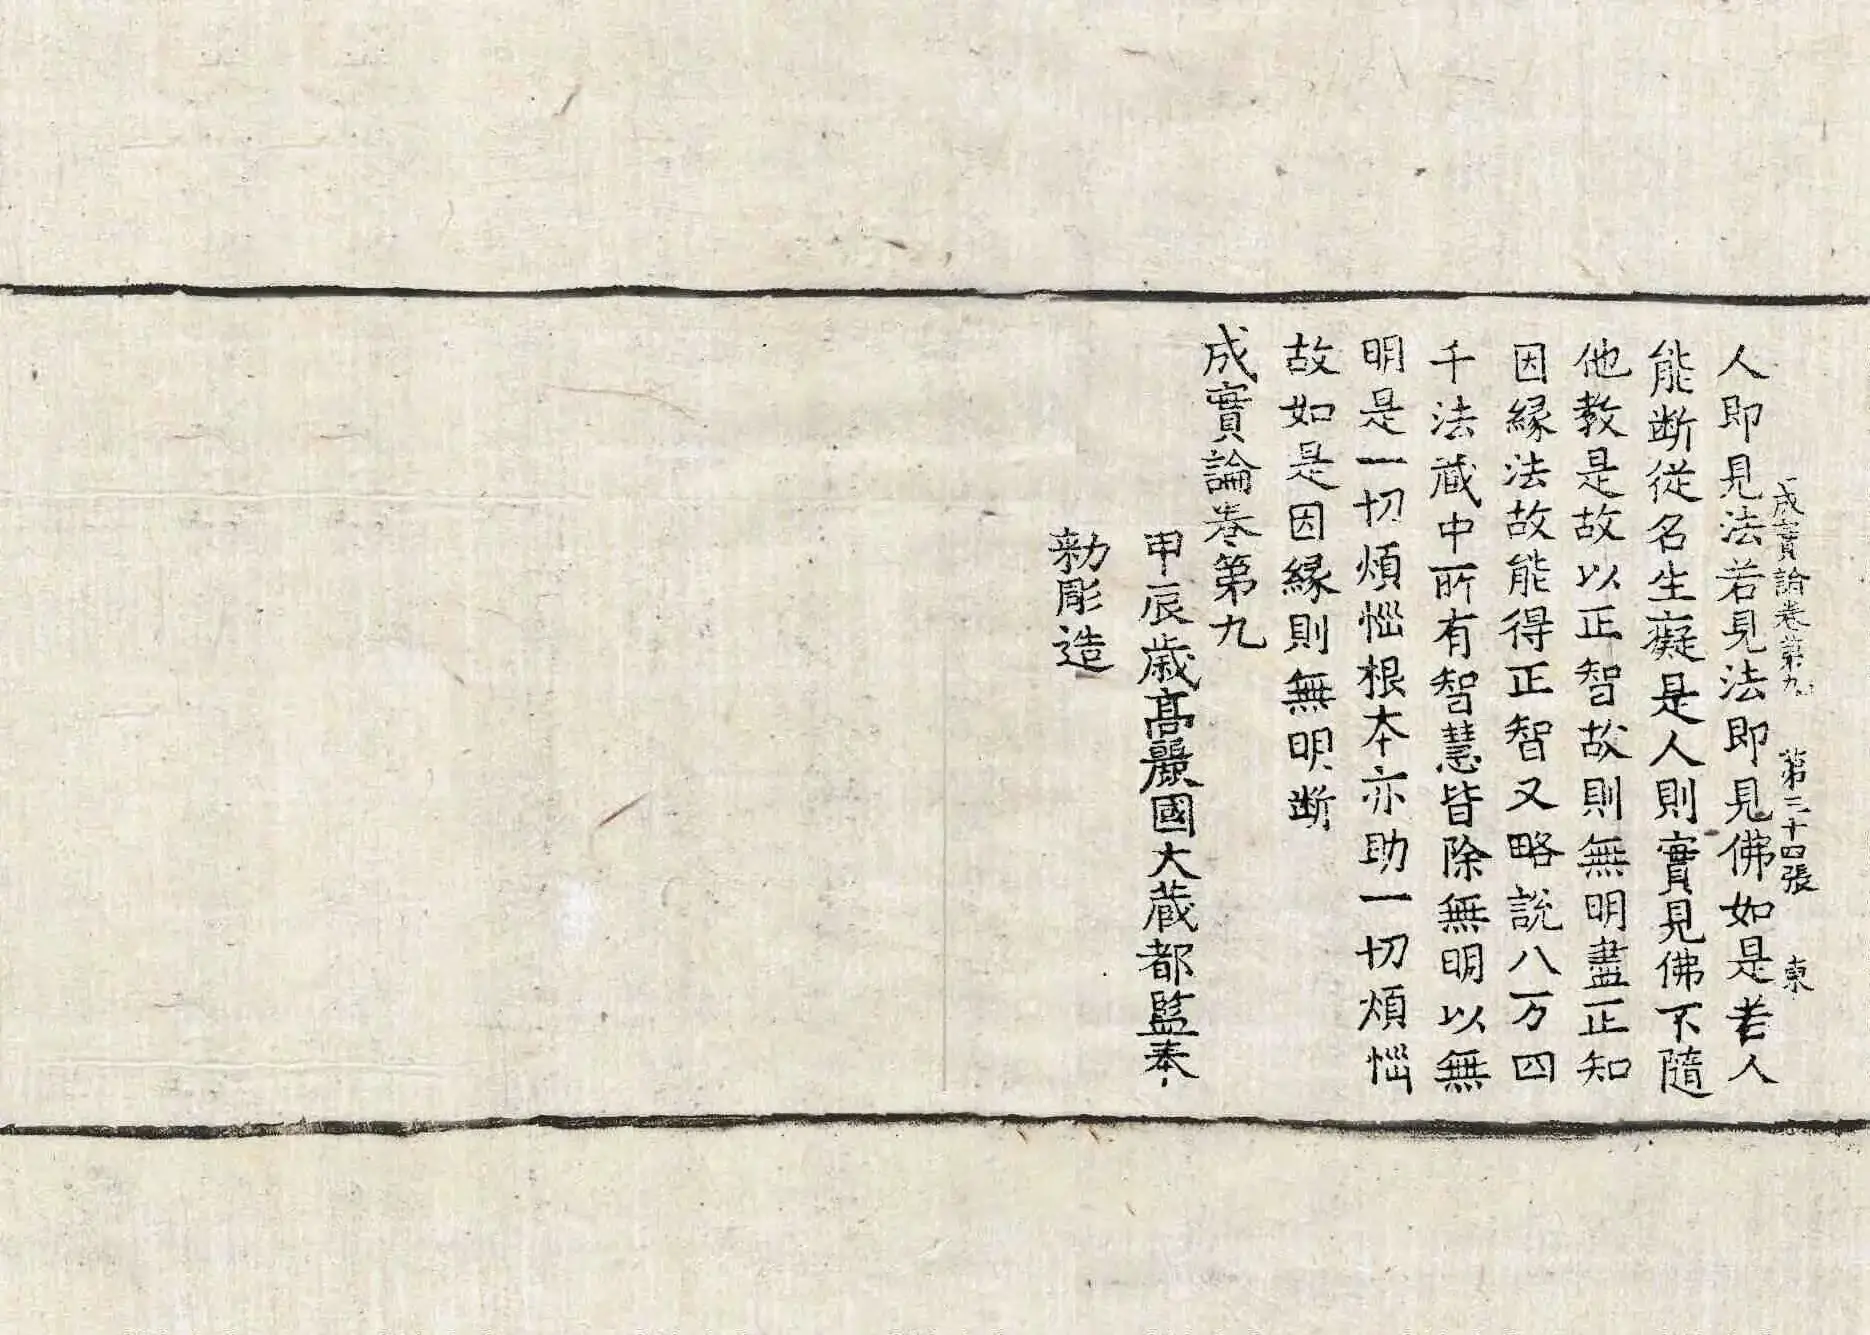 成實論卷第九 第三十四張 東
人即見法若見法即見佛如是若人
能断從名生癡是人則實見佛不隨
他教是故以正智故則無明盡正知
因縁法故能得正智又略說八万四
千法蔵中所有智慧皆除無明以無
明是一切煩惱根本亦助一切煩惱
故如是因縁則無明断
成實論卷第九
甲辰歳髙麗國大蔵都監奉
勑彫造